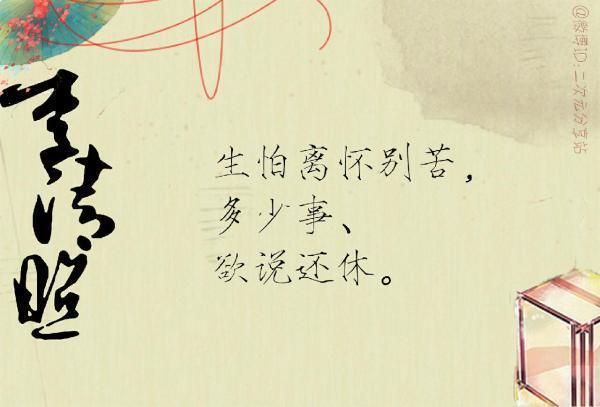 李清照
生怕离怀别苦，
多少事、
欲说还休。
@微博ID:二次元分享站